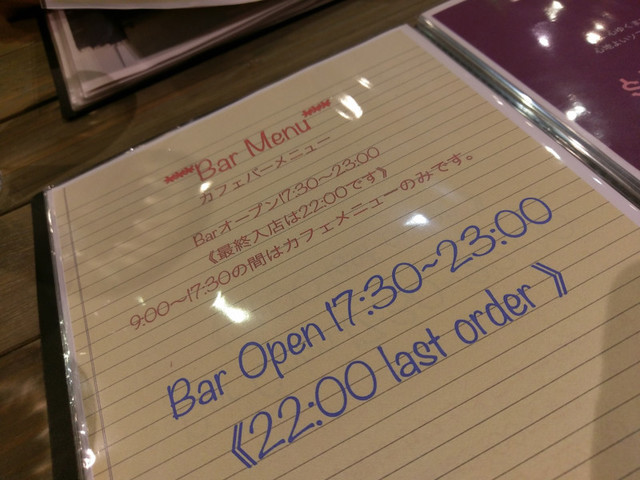 ***Bar Menu***
カフェバーメニュー
Barオープン17:30〜23:00
《最終入店は22:00です》
9:00〜17:30の間はカフェメニューのみです。
Bar Open 17:30~23:00
《22:00 last order 》